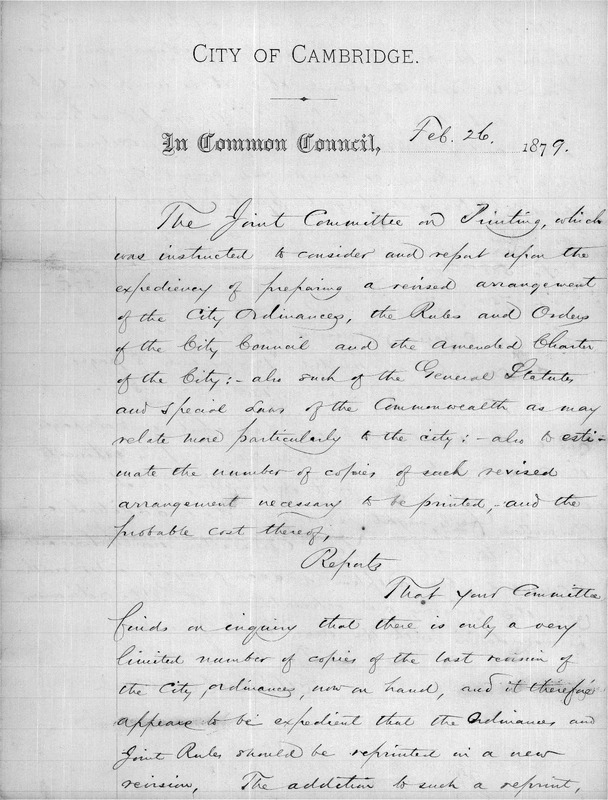 CITY OF CAMBRIDGE.
In Common Council, Feb. 26. 1879.
The Joint Committee on Printing, which
was instructed to consider and report upon the
expediency of preparing a revised arrangement
of the City Ordinances, the Rules and Orders
of the City Council and the amended Charter
of the City:- also such of the General Statutes
and Special Laws of the Commonwealth as may
relate more particularly to the city:- also to esti-
mate the number of copies of such revised
arrangement necessary to be printed,- and the
probable cost thereof,
Reports
That your Committee
finds on inquiry that there is only a very
limited number of copies of the last revision of
the City ordinances, now on hand, and it therefore
appears to be expedient that the Ordinances and
Joint Rules should be reprinted in a new
revision. The addition to such a reprint,